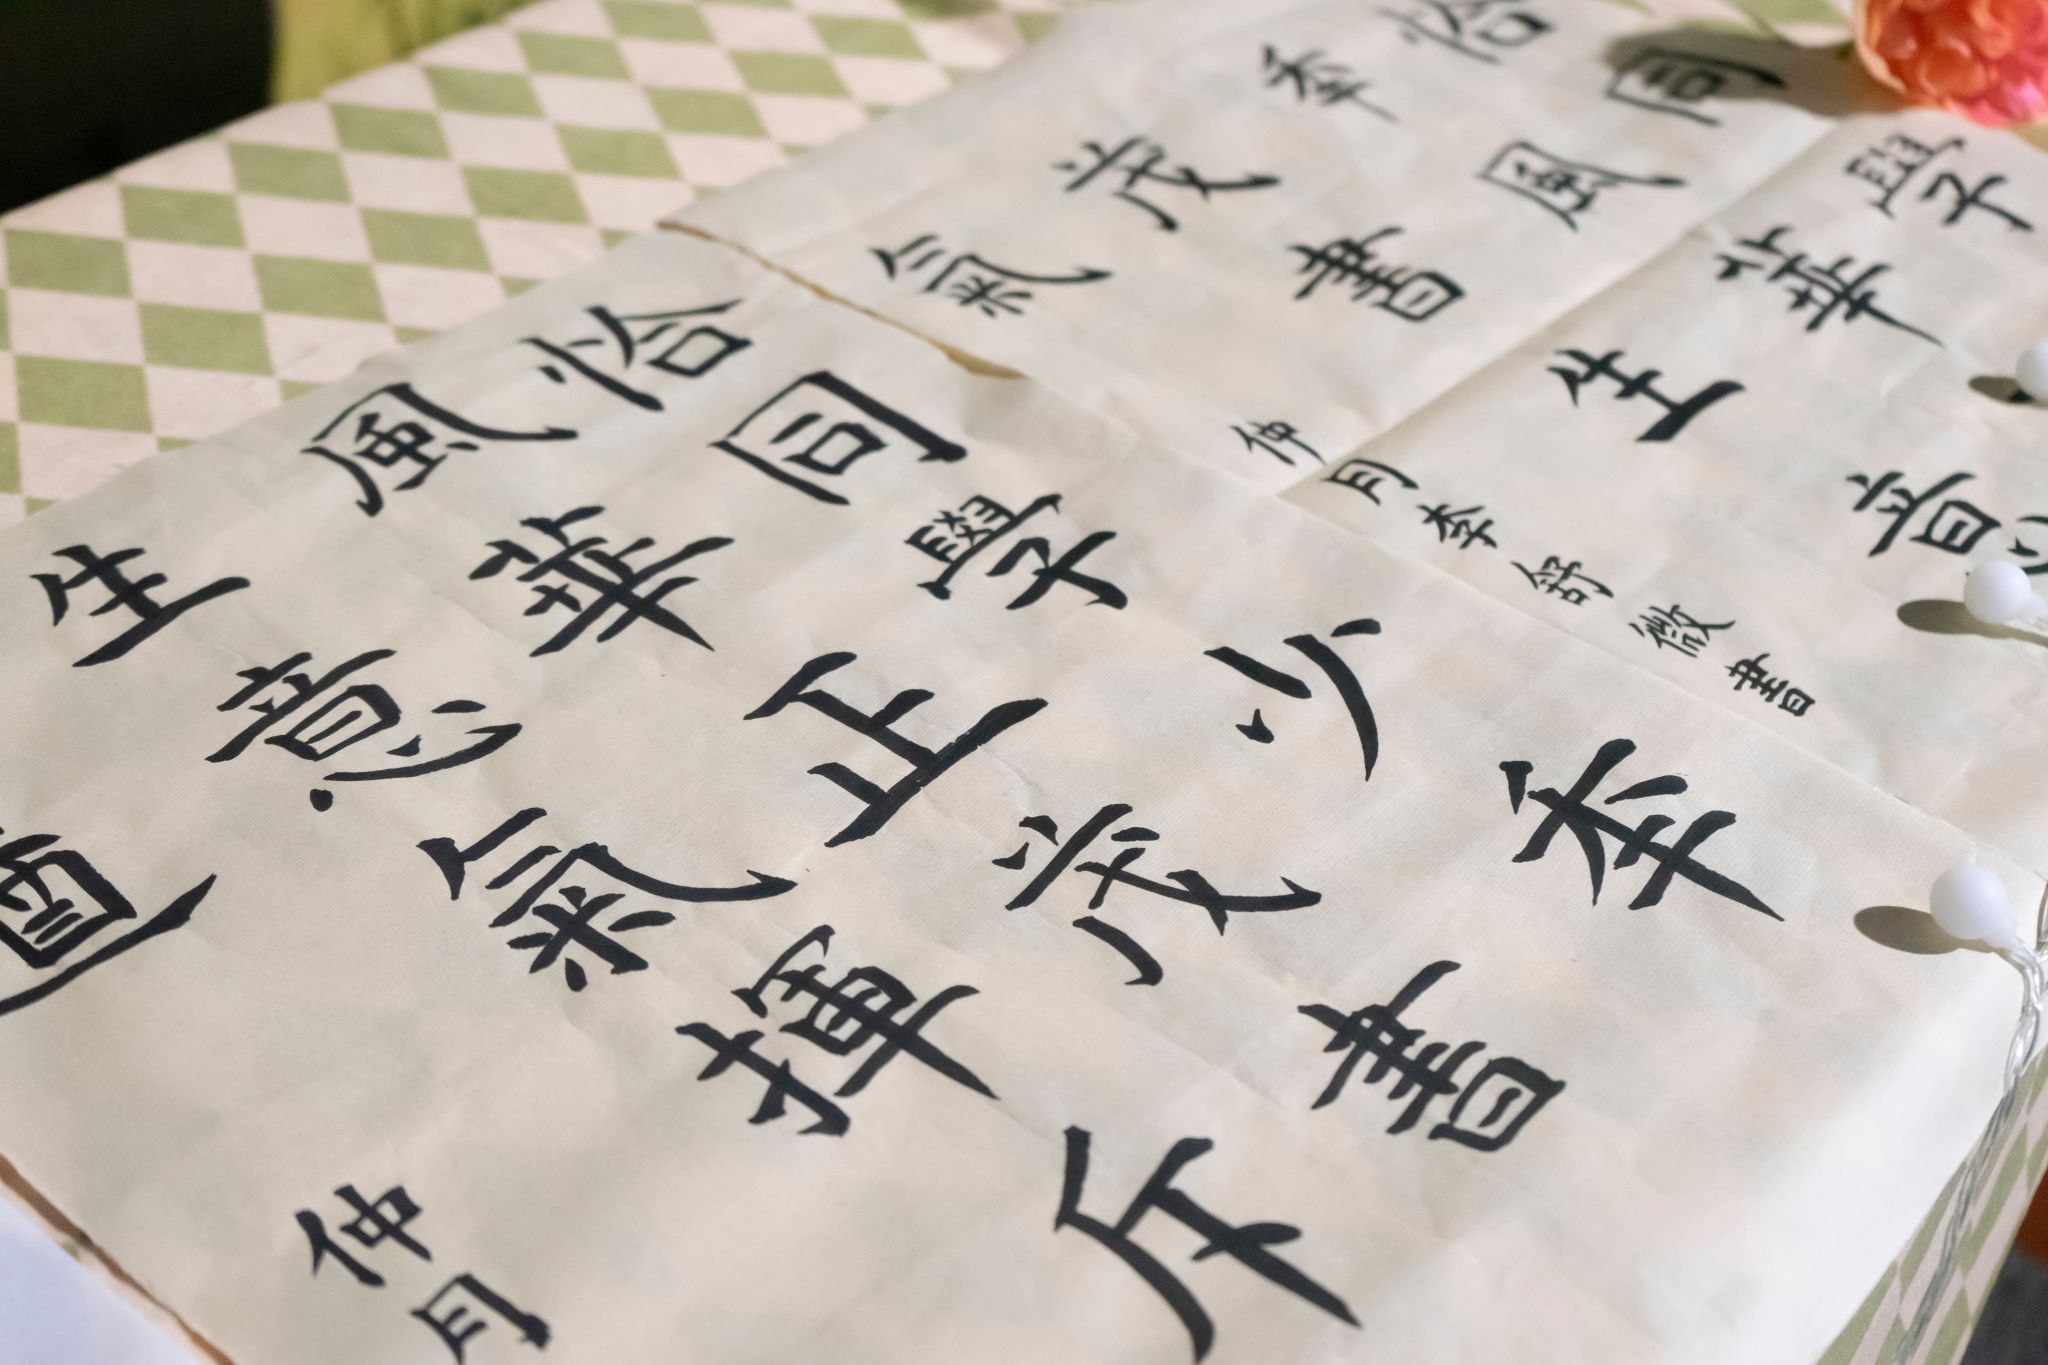 恰同學
秊風華
茂書生意
氣
仲月李舒微書
恰同學少秊
風華正茂書
生意氣揮斥
遒
仲月